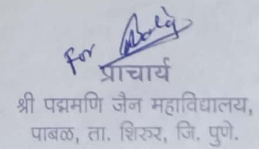 For
प्राचार्य
श्री पद्ममणि जैन महाविद्यालय,
पाबळ, ता. शिरुर, जि. पुणे.